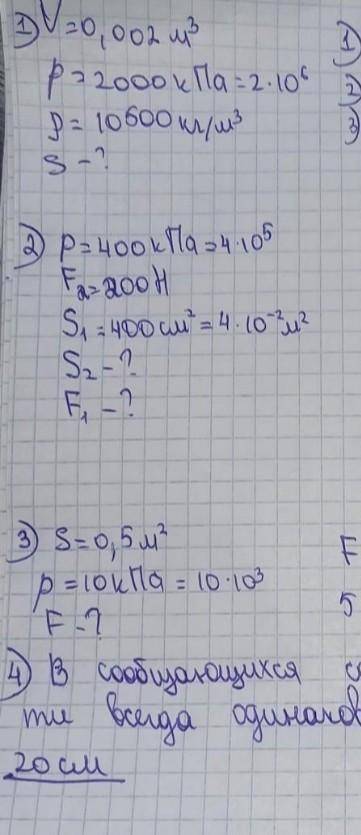 1) V=0,002 м³
1)
p=2000 кПа=2·10⁶
2)
ρ=10600 кг/м³
3)
S-?
2) p=400 кПа=4·10⁵
F₂=200Н
S₁=400 см²=4·10⁻²м²
S₂-?
F₁-?
3) S=0,5 м²
F
p=10 кПа=10·10³
5
F-?
4) В сообщающихся с
ти всегда одинаков
20 см